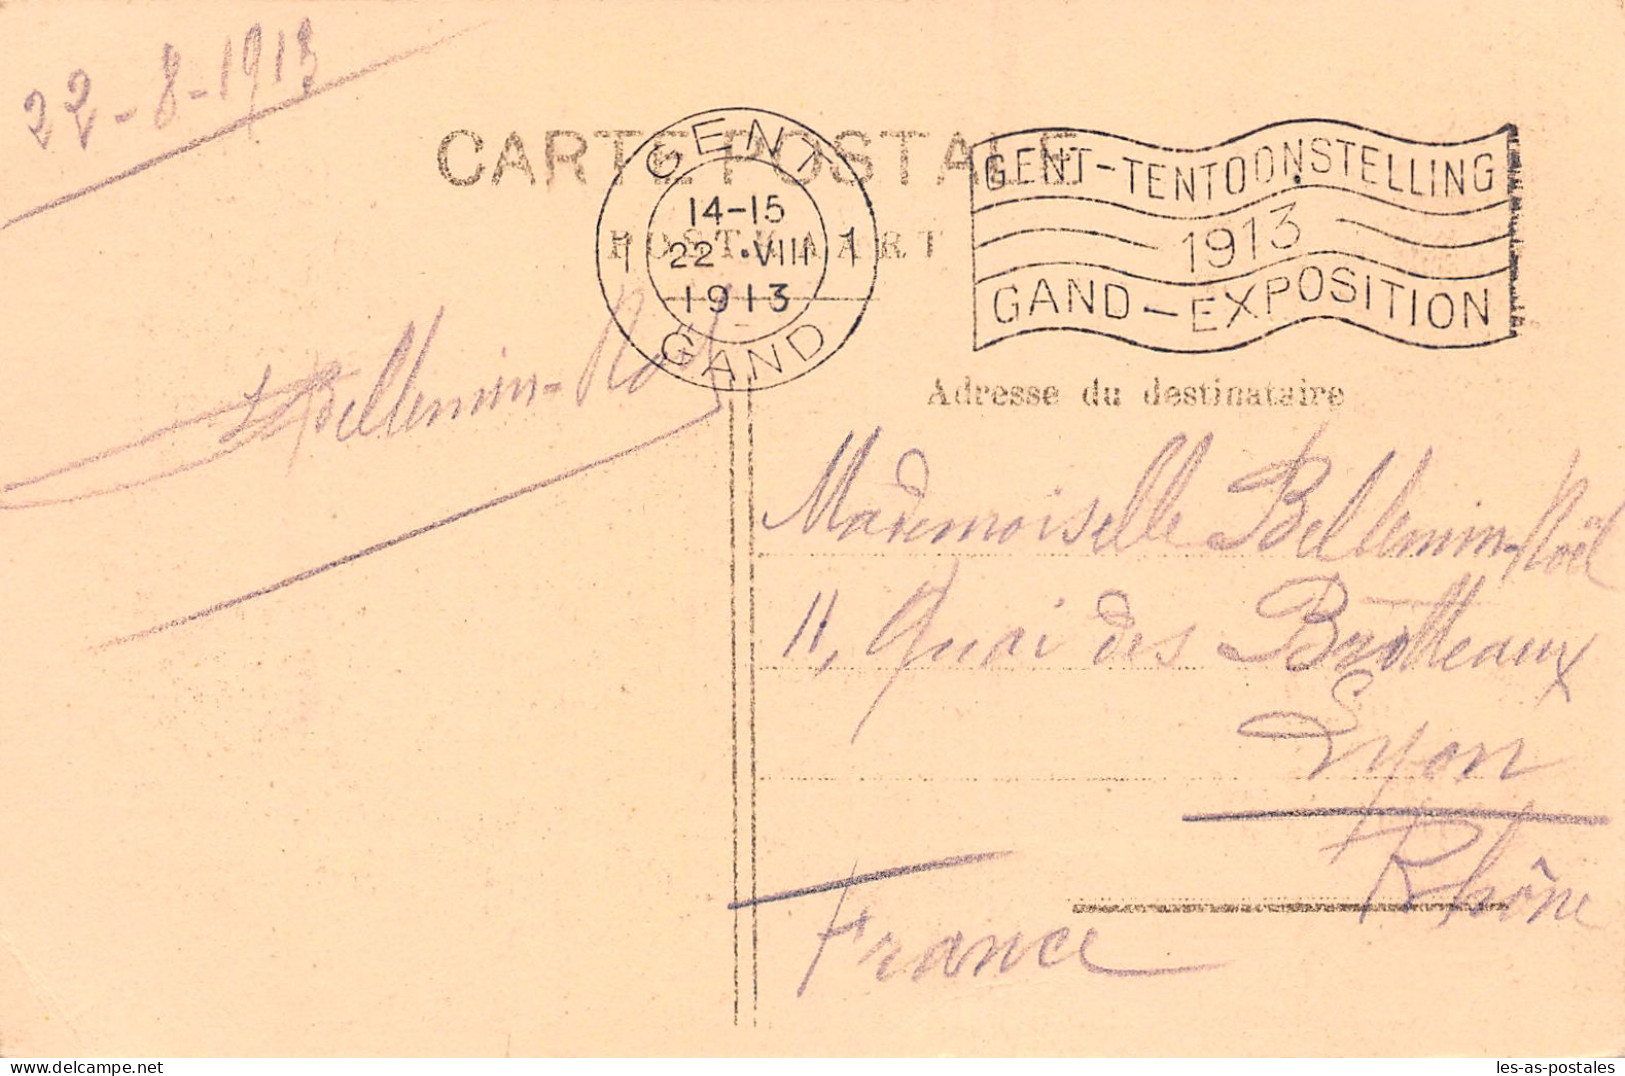 22-8-1913
CARTE POSTALE
POSTKAART
GENT
1 14-15 1
22 VIII
1913
GAND
GENT-TENTOONSTELLING
1913
GAND-EXPOSITION
Bellemin-Noël
Adresse du destinataire
Mademoiselle Bellemin-Noël
11, Quai des Brotteaux
Lyon
Rhône
France
les-as-postales